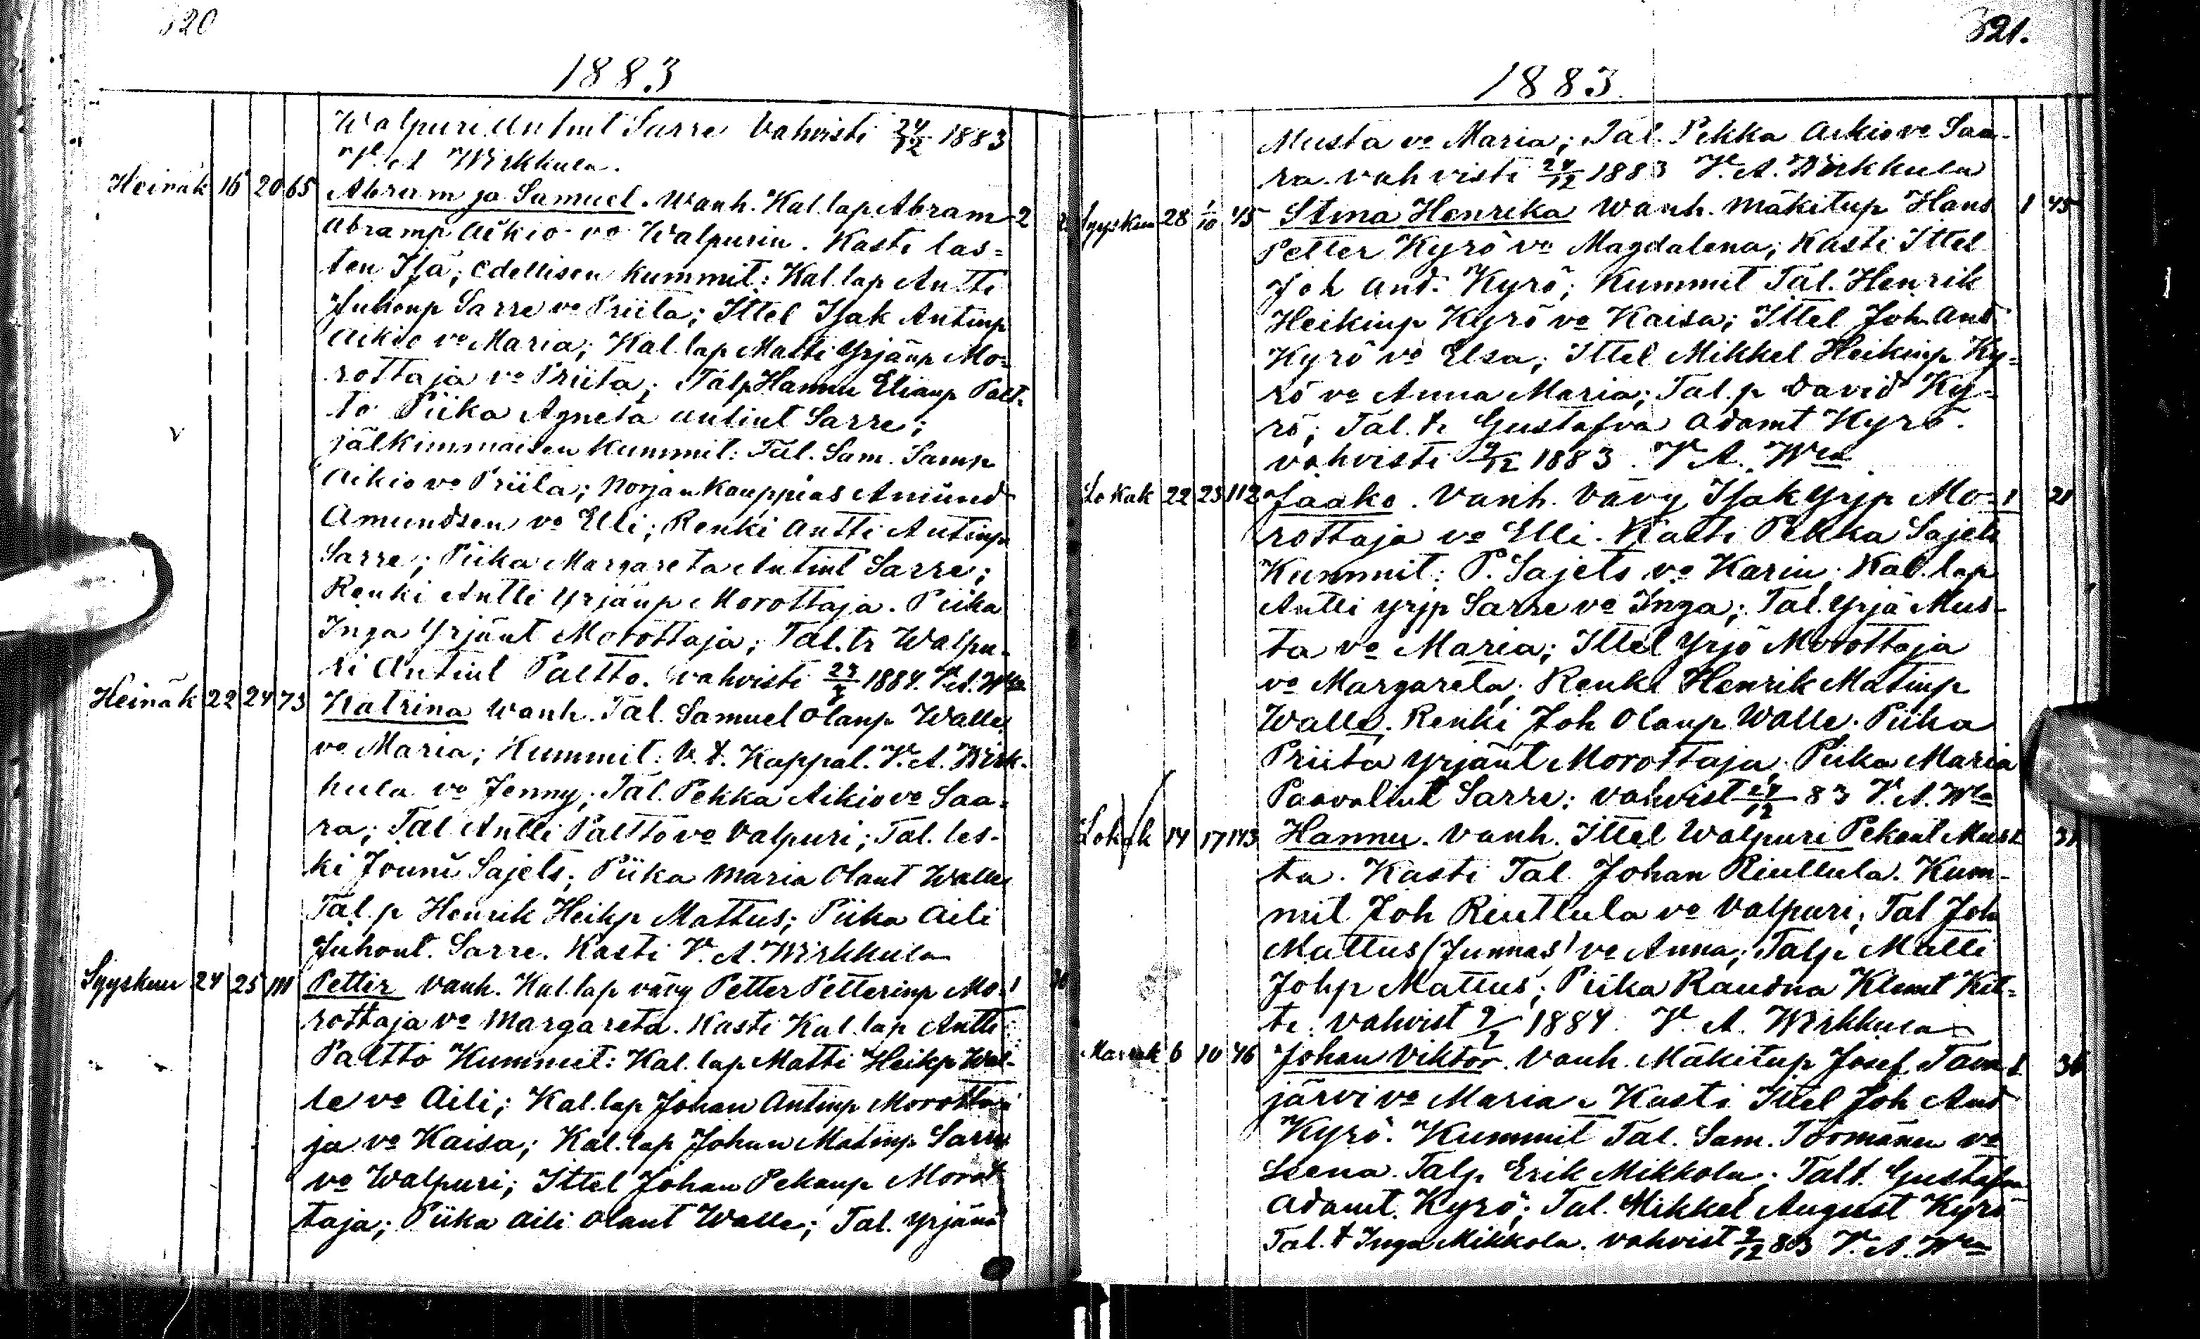 320
1883
Walpuri Antint Sarre Vahvisti 24/12 1883
V. A Wirkkula.
Heinäk 16 20 65 Abram ja Samuel. Wanh. Kal. lap Abram 2
Abramp Aikio vo Walpurin. Kasti las=
ten Isä; Edellisen kummit: Kal. lap Antti
Juhonp Sarre vo Priita; Ittel Isak Antinp
Aikio vo Maria; Kal. lap Matti Yrjänp Mo=
rottaja vo Priita; Talp Hannu Elianp Palt=
to Piika Agneta Antint Sarre;
jälkimmäisen Kummit: Tal. Sam. Samp
Aikio vo Priita; Norjan Kauppias Amund
Amundsen vo Elli; Renki Antti Antinp
Sarre; Piika Margareta Antint Sarre;
Renki Antti Yrjänp Morottaja. Piika
Inga Yrjänt Morottaja; Tal. tr Walpu-
ri Antint Paltto. vahvisti 1884. V. A. Wla
Heinäk 22 24 73 Katrina Wanh. Tal. Samuel Olanp Walle
vo Maria; Kummit: V. t. Kappal. V. A. Wirk-
kula vo Jenny; Tal. Pekka Aikio vo Saa-
ra; Tal Antti Paltto vo Valpuri; Tal. les-
ki Jouni Sajets; Piika Maria Olant Walle
Tal. p Henrik Heikp Mattus; Piika Aili
Juhont. Sarre. Kasti V. A. Wirkkula
Syyskuu 24 25 111 Petter Vanh. Kal. lap vävy Petter Petterinp Mo- 1
rottaja vo Margareta. Kasti Kal. lap Antti
Paltto Kummit: Kal. lap Matti Heikp Wal-
le vo Aili; Kal. lap Johan Antinp Morotta-
ja vo Kaisa; Kal. lap Johan Matinp Sarre
vo Walpuri; Ittel Johan Pekanp Morot
taja; Piika Aili Olant Walle; Tal. Yrjänä
321.
1883.
Musta vo Maria; Tal. Pekka Aikio vo Saa-
ra. vahvisti 24/12 1883 V. A. Wirkkula
Syyskuu 28 1/10 45 Stina Henrika Wanh. Mäkitup Hans 1 45
Petter Kyrö vo Magdalena; Kasti Ittel
Joh And. Kyrö; Kummit Tal. Henrik
Heikinp Kyrö vo Kaisa; Ittel Joh. And
Kyrö vo Elsa; Ittel Mikkel Heikinp Ky=
rö vo Anna Maria; Tal. p David Ky-
rö; Tal. tr Gustafva Adamt Kyrö.
vahvisti 9/12 1883. V. A. Wla
Lokak 22 23 112 Jaako. Vanh. Vävy Isak Yrjp Mo- 1 21
rottaja vo Elli. Kasti Pekka Sajets
Kummit: P. Sajets vo Karin; Kal. lap
Antti Yrjp Sarre vo Inga; Tal. Yrjä Mus-
ta vo Maria; Ittel Yrjö Morottaja
vo Margareta; Renki Henrik Matinp
Walle. Renki Joh Olanp Walle. Piika
Priita Yrjänt Morottaja. Piika Maria
Paavalint Sarre; vahvist 24/12 83 V. A. Wla
Lokak 14 17 113 Hannu. Vanh. Ittel Walpuri Pekant Mus
ta. Kasti Tal. Johan Riuttula. Kum-
mit Joh Riuttula vo Valpuri; Tal Joh
Mattus (Junnas) vo Anna; Talp Matti
Johp Mattus; Piika Raudna Klemt Kit-
ti. vahvist 9/2 1884. V. A. Wirkkula
Marrask 6 10 46 Johan Viktor. Vanh. Mäkitup Josef Tam 1 36
järvi vo Maria. Kasti Ittel Joh And
Kyrö. Kummit Tal. Sam. Toomänen vo
Leena. Talp Erik Mikkola; Talt. Gustafva
Adamt. Kyrö; Tal. Mikkel August Kyrö
Tal. t Inga Mikkola. vahvist 9/12 83 V. A. Wla